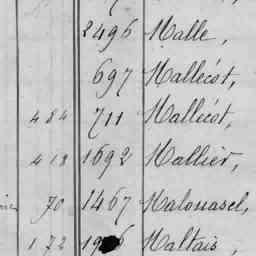 2496 Malle,
697 Mallécot,
484 711 Mallécot,
418 1692 Mallier,
70 1467 Malouasel,
172 Maltais,